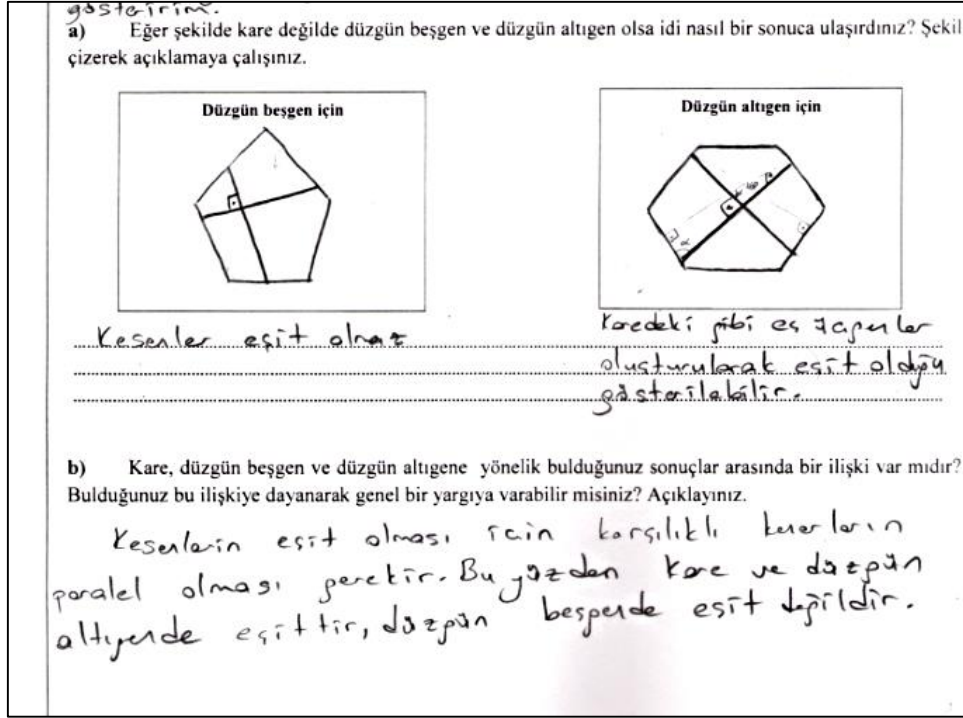 gösteririm.
a) Eğer şekilde kare değilde düzgün beşgen ve düzgün altıgen olsa idi nasıl bir sonuca ulaşırdınız? Şekil
çizerek açıklamaya çalışınız.
Düzgün beşgen için
Düzgün altıgen için
Kesenler eşit olmaz
Karedeki gibi eş üçgenler
oluşturularak eşit olduğu
gösterilebilir.
b) Kare, düzgün beşgen ve düzgün altıgene yönelik bulduğunuz sonuçlar arasında bir ilişki var mıdır?
Bulduğunuz bu ilişkiye dayanarak genel bir yargıya varabilir misiniz? Açıklayınız.
Kesenlerin eşit olması için karşılıklı kenarların
paralel olması gerekir. Bu yüzden kare ve düzgün
altıgende eşittir, düzgün beşgende eşit değildir.